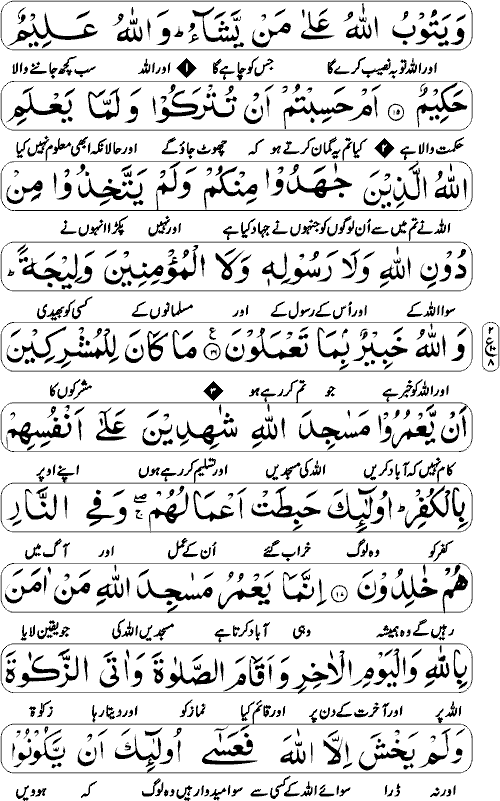 وَيَتُوْبُ اللّٰهُ عَلٰى مَنْ يَّشَآءُ ؕ وَاللّٰهُ عَلِيْمٌ
اور اللہ توبہ نصیب کرے گا جس کو چاہے گا ۱ اور اللہ سب کچھ جاننے والا
حَكِيْمٌ ﴿۱۵﴾ اَمْ حَسِبْتُمْ اَنْ تُتْرَكُوْا وَلَمَّا يَعْلَمِ
حکمت والا ہے ۲ کیا تم یہ گمان کرتے ہو کہ چھوٹ جاؤ گے اور حالانکہ ابھی معلوم نہیں کیا
اللّٰهُ الَّذِيْنَ جٰهَدُوْا مِنْكُمْ وَلَمْ يَتَّخِذُوْا مِنْ
اللہ نے تم میں سے اُن لوگوں کو جنہوں نے جہاد کیا ہے اور نہیں پکڑا انہوں نے
دُوْنِ اللّٰهِ وَلَا رَسُوْلِهٖ وَلَا الْمُؤْمِنِيْنَ وَلِيْجَةً ؕ
سوا اللہ کے اور اُس کے رسول کے اور مسلمانوں کے کسی کو بھیدی
وَاللّٰهُ خَبِيْرٌۢ بِمَا تَعْمَلُوْنَ ﴿۱۶﴾ ع مَا كَانَ لِلْمُشْرِكِيْنَ
۲ ع ۸
اور اللہ کو خبر ہے جو تم کر رہے ہو ۳ مشرکوں کا
اَنْ يَّعْمُرُوْا مَسٰجِدَ اللّٰهِ شٰهِدِيْنَ عَلٰٓى اَنْفُسِهِمْ
کام نہیں کہ آباد کریں اللہ کی مسجدیں اور تسلیم کر رہے ہوں اپنے اوپر
بِالْكُفْرِ ؕ اُولٰٓئِكَ حَبِطَتْ اَعْمَالُهُمْ ۖۚ وَفِي النَّارِ
کفر کو وہ لوگ خراب گئے اُن کے عمل اور آگ میں
هُمْ خٰلِدُوْنَ ﴿۱۷﴾ اِنَّمَا يَعْمُرُ مَسٰجِدَ اللّٰهِ مَنْ اٰمَنَ
رہیں گے وہ ہمیشہ وہی آباد کرتا ہے مسجدیں اللہ کی جو یقین لایا
بِاللّٰهِ وَالْيَوْمِ الْاٰخِرِ وَاَقَامَ الصَّلٰوةَ وَاٰتَى الزَّكٰوةَ
اللہ پر اور آخرت کے دن پر اور قائم کیا نماز کو اور دیتا رہا زکوٰۃ
وَلَمْ يَخْشَ اِلَّا اللّٰهَ فَعَسٰٓى اُولٰٓئِكَ اَنْ يَّكُوْنُوْا
اور نہ ڈرا سوائے اللہ کے کسی سے سو امیدوار ہیں وہ لوگ کہ ہوویں